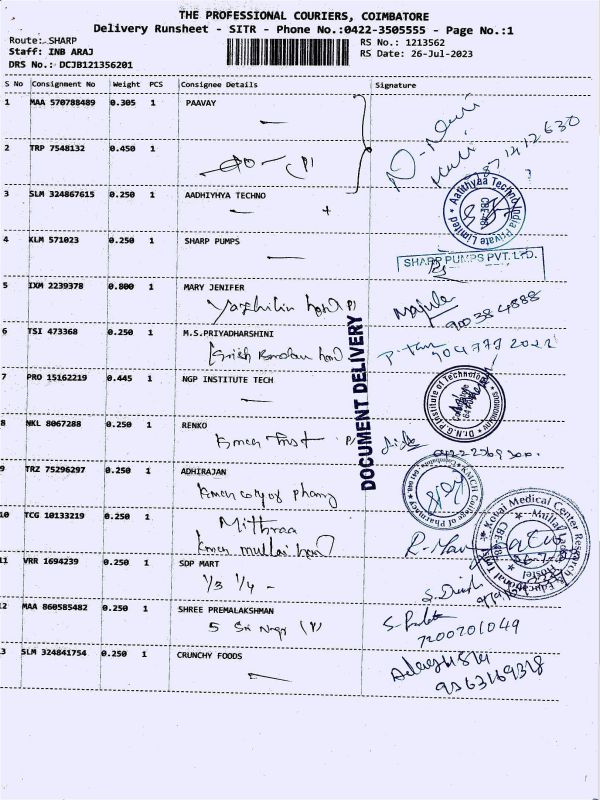 THE PROFESSIONAL COURIERS, COIMBATORE
Delivery Runsheet - SITR - Phone No.:0422-3505555 - Page No.:1
Route: SHARP
RS No.: 1213562
Staff: INB ARAJ
RS Date: 26-Jul-2023
DRS No.: DCJB121356201
S No Consignment No Weight PCS Consignee Details Signature
1 MAA 570788489 0.305 1 PAAVAY
2 TRP 7548132 0.450 1
3 SLM 324867615 0.250 1 AADHIYHYA TECHNO
Aanthyaa Techno India Private Limited
4 KLM 571023 0.250 1 SHARP PUMPS
SHARP PUMPS PVT. LTD.
5 IXM 2239378 0.800 1 MARY JENIFER
900384888
6 TSI 473368 0.250 1 M.S.PRIYADHARSHINI
DOCUMENT DELIVERY
7 PRO 15162219 0.445 1 NGP INSTITUTE TECH
Dr.N.G.P.Institute of Technology
8 NKL 8067288 0.250 1 RENKO
9 TRZ 75296297 0.250 1 ADHIRAJAN
KMCH College of Pharmacy
10 TCG 10133219 0.250 1 Mithraa
Kovai Medical Center Research & Educational Trust
11 VRR 1694239 0.250 1 SDP MART
1/3 1/4 -
12 MAA 860585482 0.250 1 SHREE PREMALAKSHMAN
7200201049
3 SLM 324841754 0.250 1 CRUNCHY FOODS
9363169378